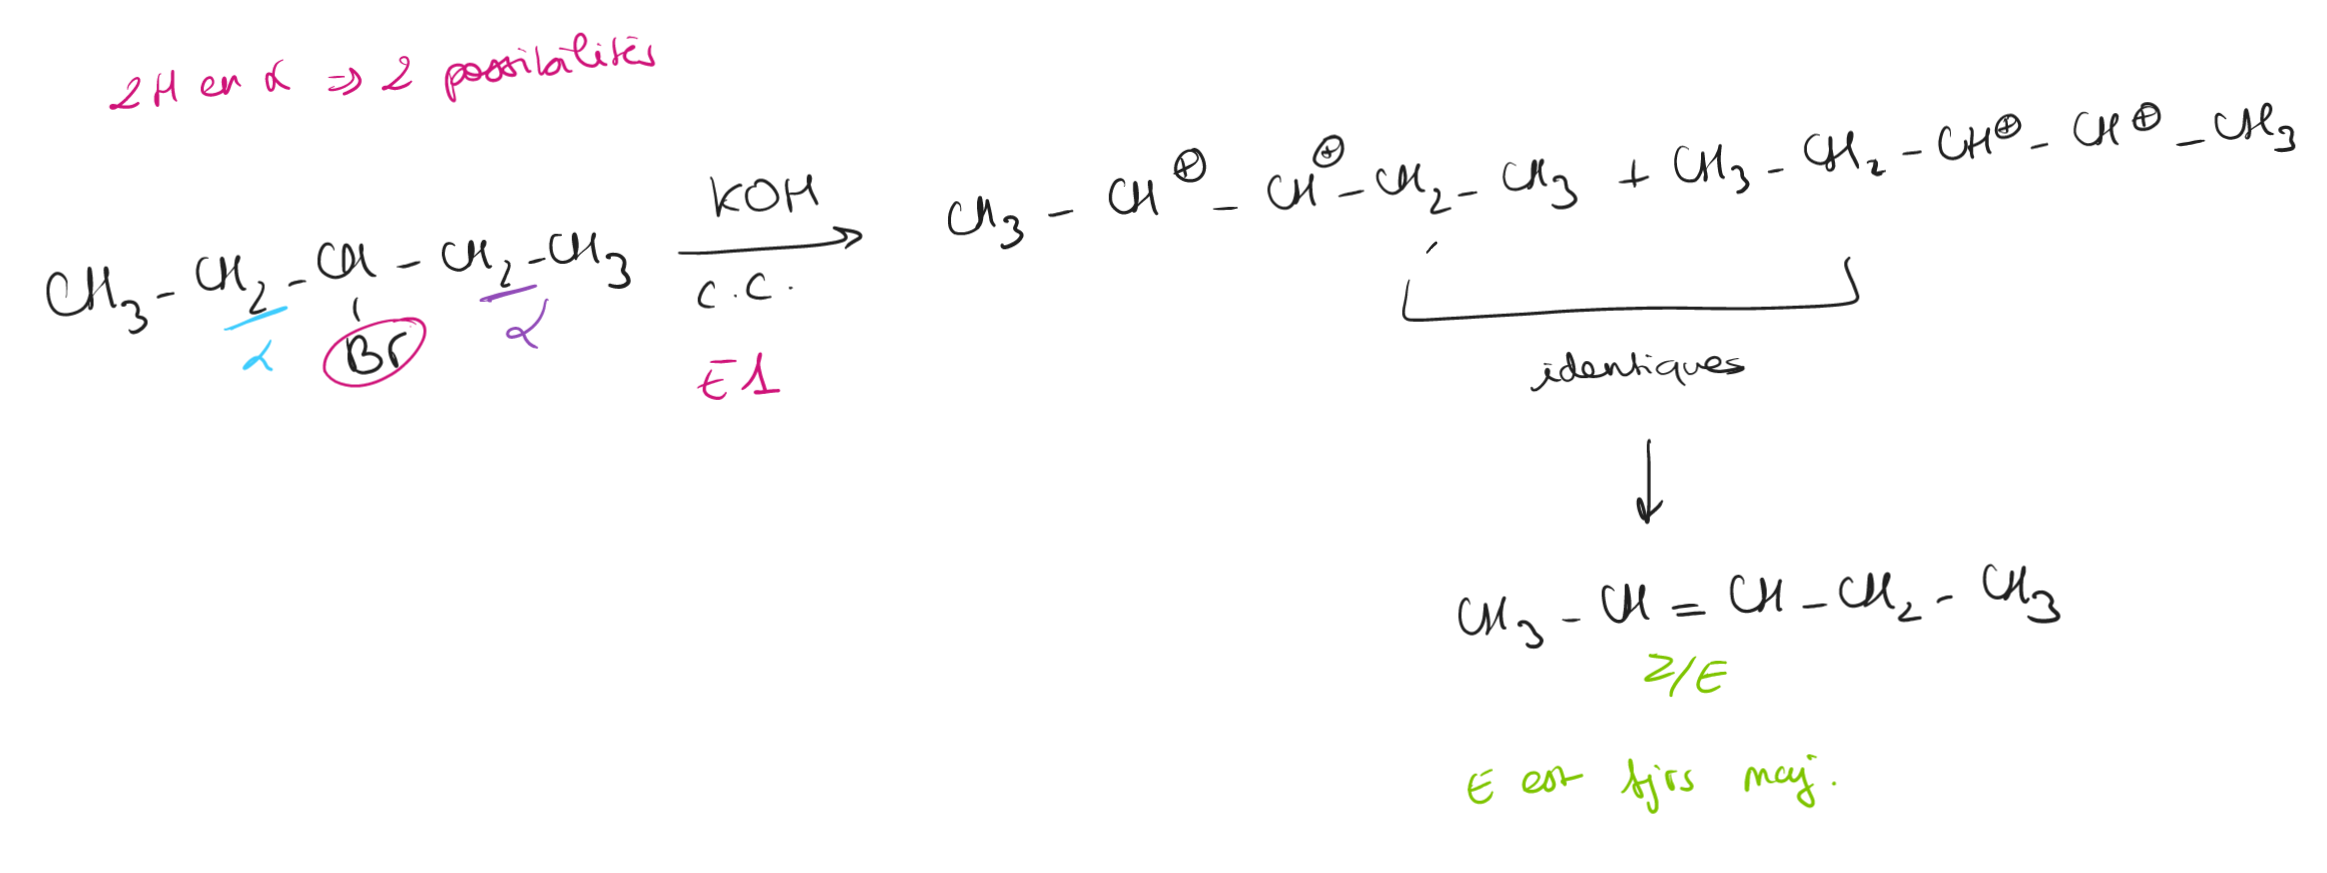 2H en α ⇒ 2 possibilités
CH₃ - CH₂ - CH - CH₂ - CH₃
α
Br
α
KOH
c.c.
E1
CH₃ - CH⊕ - CH⊕ - CH₂ - CH₃ + CH₃ - CH₂ - CH⊕ - CH⊕ - CH₃
identiques
CH₃ - CH = CH - CH₂ - CH₃
Z/E
E est tjrs maj.